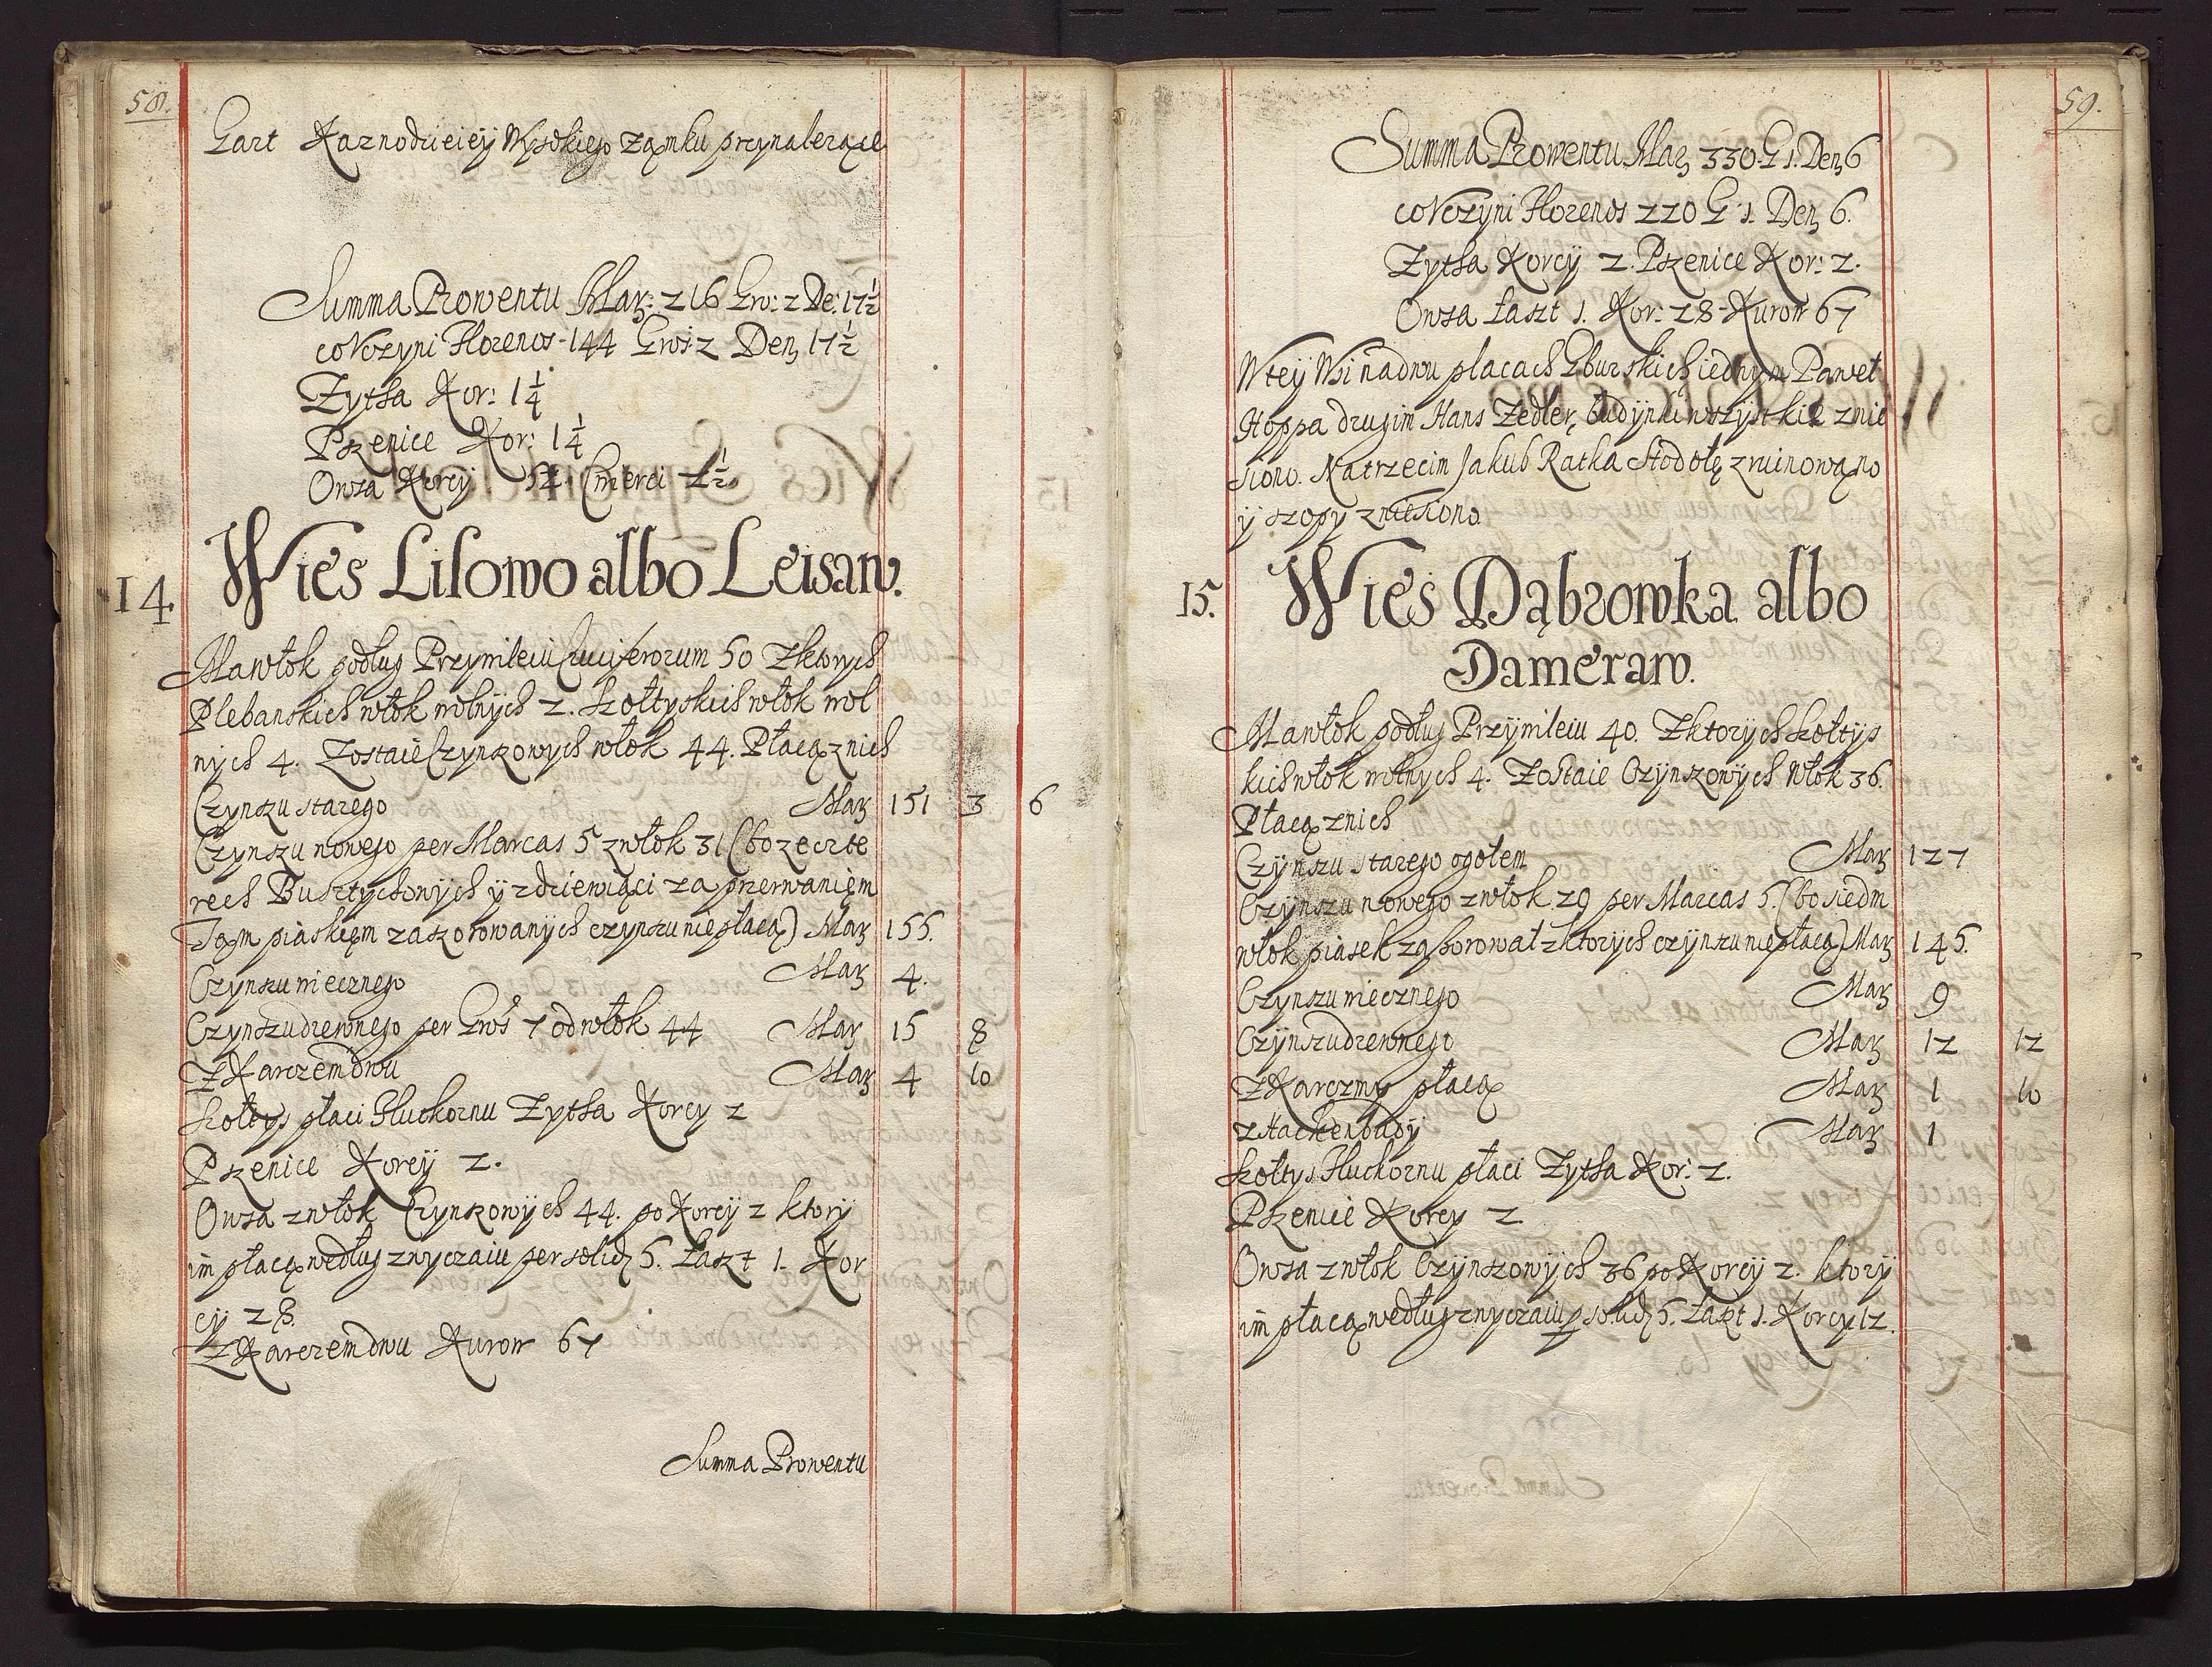 58.
Gart Kaznodzieiey Wysokiego Ząmku przynależące
Summa Prowentu Mar: 216 Gro: 2 De: 17½
co Vczyni Florenos 144 Gros 2 Den 17½
Zytha Kor: 1¼
Pszenice Kor: 1¼
Owsa Korcy 52. Cwierci 2½
14. Wies Lisowo albo Leisaw.
Ma włok podług Przywileiu Cruciferorum 50 Z ktorych
Plebanskich włok wolnych 2. Szołtyskich włok wol
nych 4. Zostaie Czynszowych włok 44. Płacą z nich
Czynszu starego Mar 151 3 6
Czynszu nowego per Marcas 5 z włok 31 (bo z czte
rech Busztychowych y z dziewiąci za przerwanięm
Tąm piaskięm zaszorowanych czynszu nie płacą) Mar 155.
Czynszu miecznego Mar 4.
Czynszu drewnego per Gros 7 od włok 44 Mar 15 8
Z Karczem dwu Mar 4 10
Szołtys płaci Pluckornu Zytha Korcy 2
Pszenice Korcy 2.
Owsa z włok Czynszowych 44. po Korcy 2 ktory
im płacą według zwyczaiu per solid 5. Łaszt 1. Kor
cy 28.
Z Karczem dwu Kurow 67
Summa Prowentu
59.
Summa Prowentu Mar 330. G 1. Den 6
co Vczyni Florenos 220 G 1. Den 6.
Zytha Korcy 2. Pszenice Kor: 2.
Owsa Łaszt 1. Kor: 28. Kurow 67
W tey Wsi na dwu placach Gburskich iednym Paweł
Hoppa drugim Hans Zedler, budynki wszystkie znie
siono. Na trzecim Jakub Ratka Stodołę zruinowąno
y szopy zniesiono.
15. Wies Dąbrowka albo
Dameraw.
Ma włok podług Przywileiu 40. Z ktorych Szołtys
kich włok wolnych 4. Zostaie Czynszowych Włok 36.
Płacą z nich
Czynszu starego ogołem Mar 127
Czynszu nowego z włok 29 per Marcas 5. (bo siedm
włok piasek zaszorował z ktorych czynszu nie płacą) Mar 145.
Czynszu miecznego Mar 9
Czynszu drewnego Mar 12 12
Z Karczmy płacą Mar 1 10
z Hackenbudy Mar 1
Szołtys Pluckornu płaci Zytha Kor: 2.
Pszenice Korcy 2
Owsa z włok Czynszowych 36 po Korcy 2. ktory
im płacą według zwyczaiu p solid 5. Łaszt 1. Korcy 12.